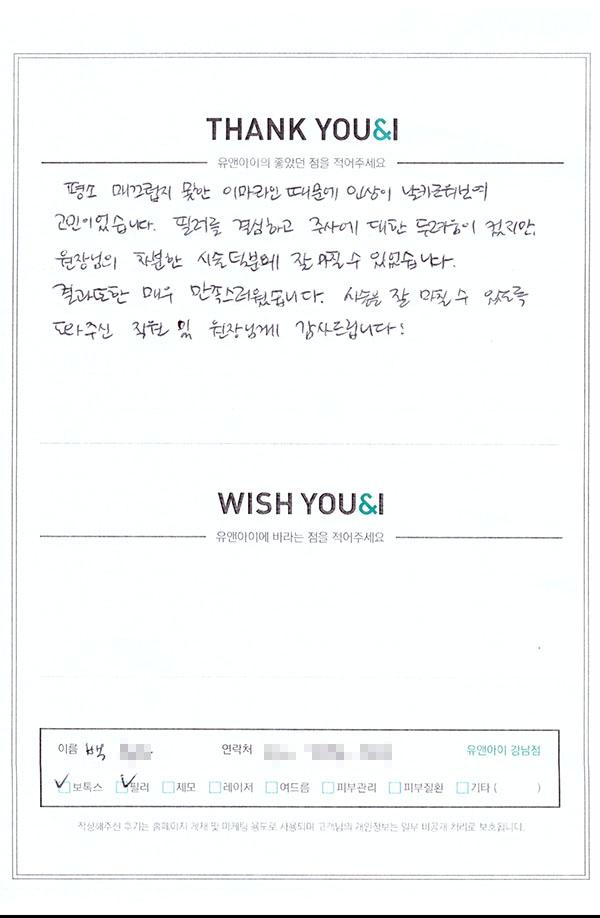 THANK YOU&I
유앤아이의 좋았던 점을 적어주세요
평소 매끄럽지 못한 이마라인 때문에 인상이 날카로워보여
고민이었습니다. 필러를 결심하고 주사에 대한 두려움이 컸지만,
원장님의 차분한 시술 덕분에 잘 마칠 수 있었습니다.
결과또한 매우 만족스러웠습니다. 시술을 잘 마칠 수 있도록
도와주신 직원 및 원장님께 감사드립니다!
WISH YOU&I
유앤아이에 바라는 점을 적어주세요
이름 백 연락처 유앤아이 강남점
보톡스 필러 제모 레이저 여드름 피부관리 피부질환 기타 ( )
작성해주신 후기는 홈페이지 게재 및 마케팅 용도로 사용되며 고객님의 개인정보는 일부 비공개 처리로 보호됩니다.